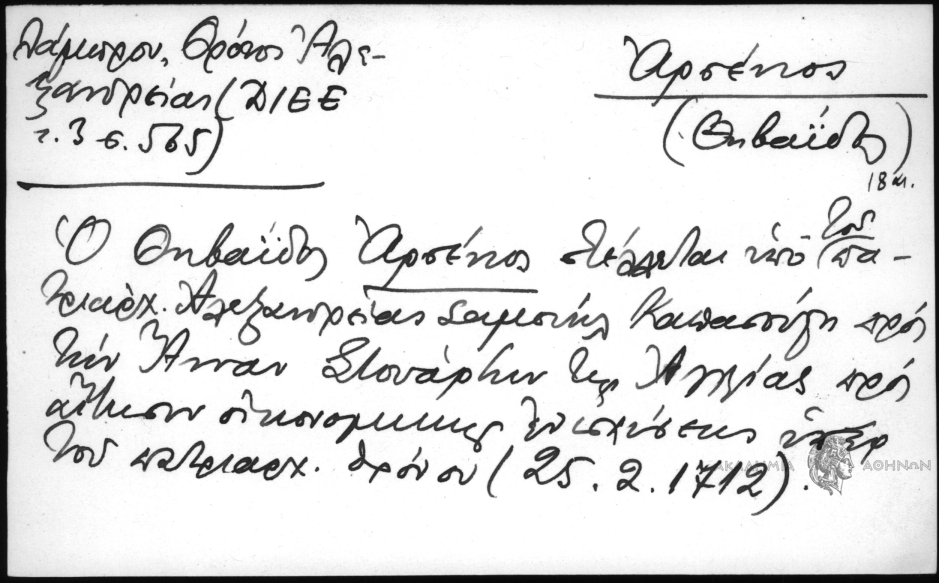 Λάμπρου, Θρόνος Ἀλε-
ξανδρείας (ΔΙΕΕ
τ. 3 σ. 565)
Ἀρσένιος
(Θηβαΐδος)
18 αι.
Ὁ Θηβαΐδος Ἀρσένιος στέλλεται ὑπὸ τοῦ πα-
τριαρχ. Ἀλεξανδρείας Σαμουὴλ Καπασούλη πρὸς
τὴν Ἄνναν Στουάρτην τῆς Ἀγγλίας πρὸς
αἴτησιν οἰκονομικῆς ἐνισχύσεως ὑπὲρ
τοῦ πατριαρχ. θρόνου (25.2.1712).
ΑΚΑΔΗΜΙΑ ΑΘΗΝΩΝ